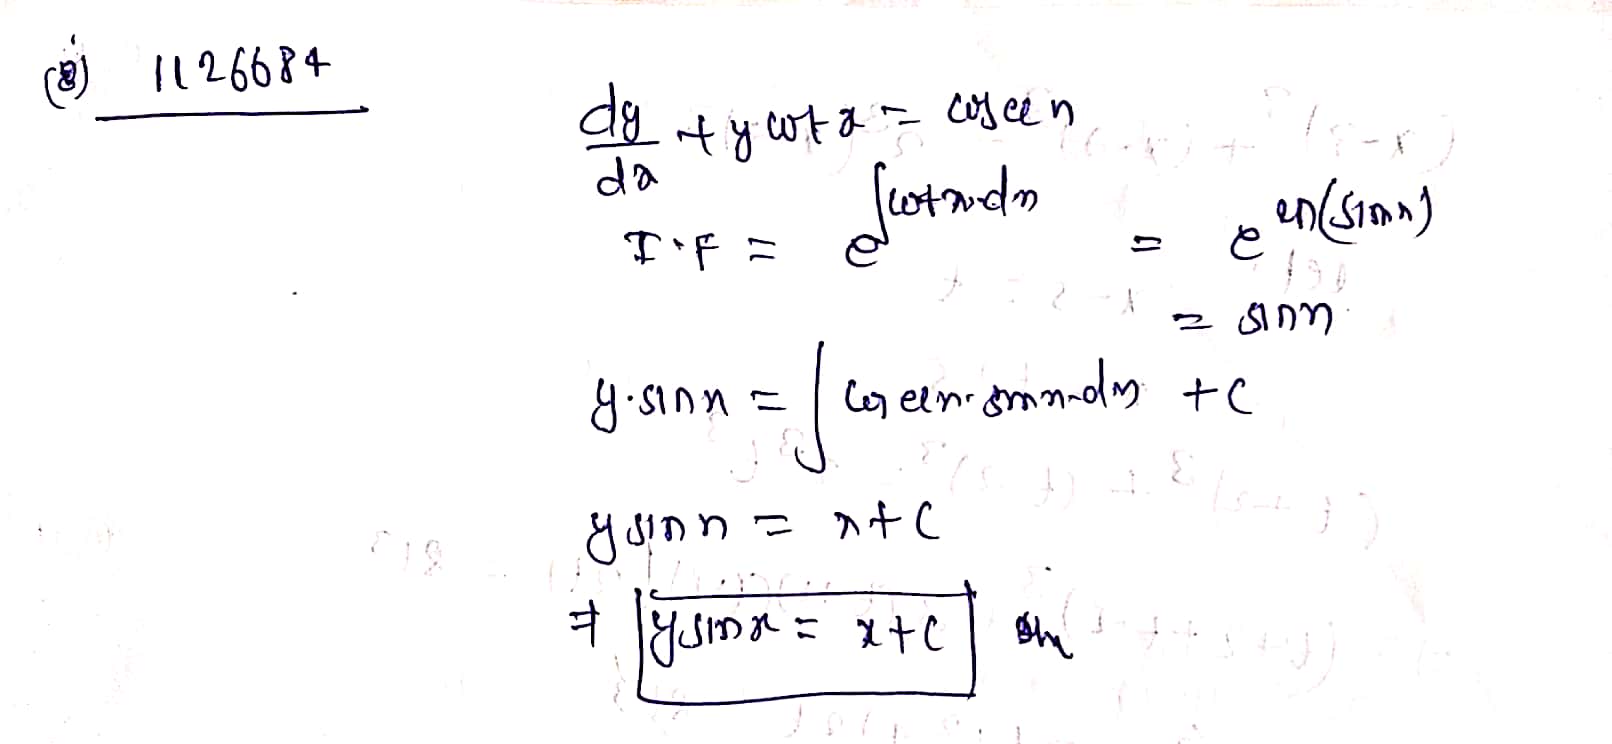 (8) 1126684
dy/dx + y cot x = cosec x
I.F = e^∫cot x.dx = e^ln(sin x)
= sin x
y.sin x = ∫ cosec x. sin x.dx + C
y sin x = x + C
⇒ y sin x = x + C